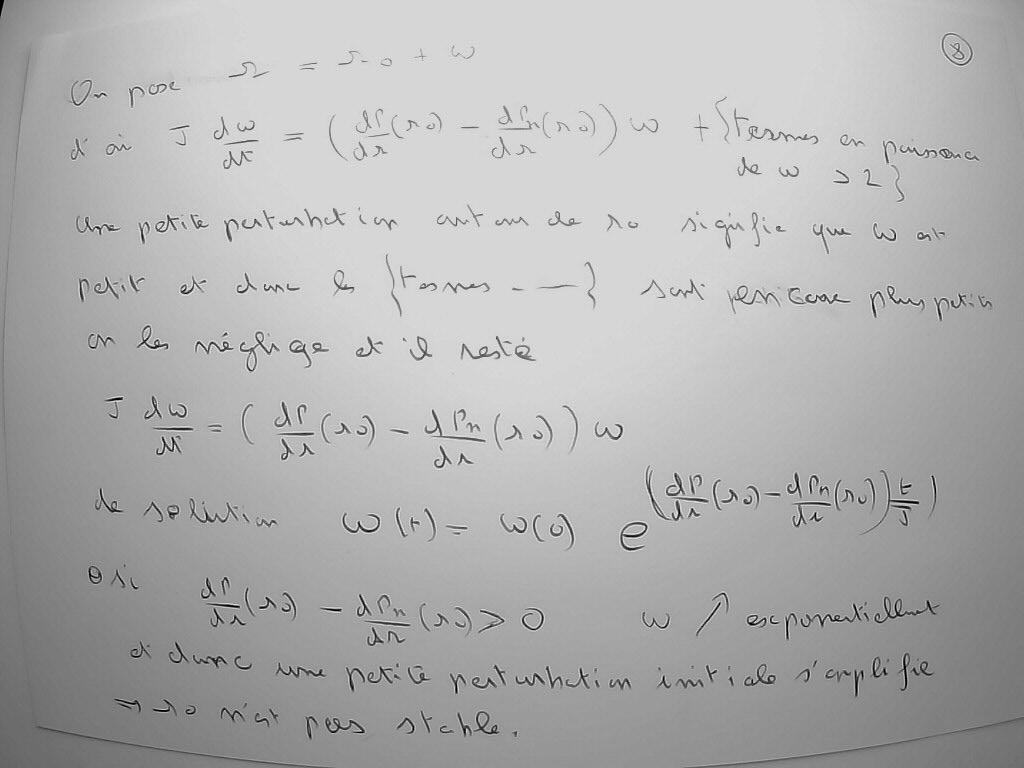 8
On pose Ω = Ω0 + ω
d'où J dω/dt = (dΓ/dΩ(Ω0) − dΓn/dΩ(Ω0)) ω + {termes en puissance
de ω > 2}
Une petite perturbation autour de Ω0 signifie que ω est
petit et donc les {termes - —} sont encore plus petits
on les néglige et il reste
J dω/dt = (dΓ/dΩ(Ω0) − dΓn/dΩ(Ω0)) ω
de solution ω(t) = ω(0) e^((dΓ/dΩ(Ω0) − dΓn/dΩ(Ω0)) t/J)
si dΓ/dΩ(Ω0) − dΓn/dΩ(Ω0) > 0 ω ↗ exponentiellement
et donc une petite perturbation initiale s'amplifie
⇒ Ω0 n'est pas stable.